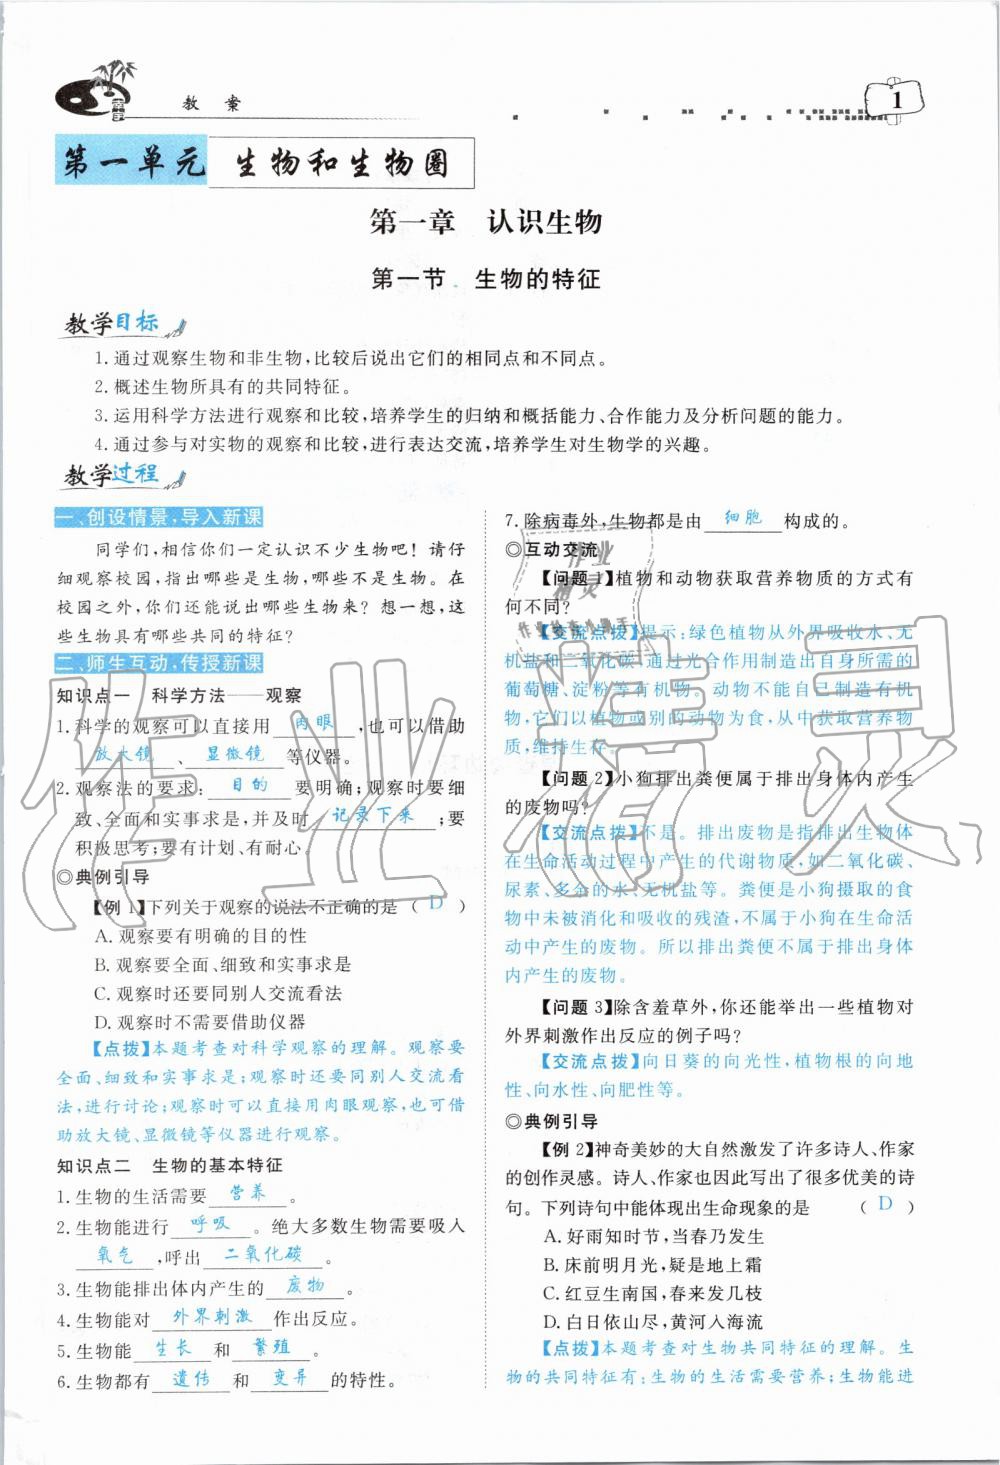 教案
1
第一单元 生物和生物圈
第一章 认识生物
第一节 生物的特征
教学目标
1.通过观察生物和非生物,比较后说出它们的相同点和不同点。
2.概述生物所具有的共同特征。
3.运用科学方法进行观察和比较,培养学生的归纳和概括能力、合作能力及分析问题的能力。
4.通过参与对实物的观察和比较,进行表达交流,培养学生对生物学的兴趣。
教学过程
一、创设情景,导入新课
同学们,相信你们一定认识不少生物吧!请仔
细观察校园,指出哪些是生物,哪些不是生物。在
校园之外,你们还能说出哪些生物来?想一想,这
些生物具有哪些共同的特征?
二、师生互动,传授新课
知识点一 科学方法——观察
1.科学的观察可以直接用 肉眼 ,也可以借助
放大镜 、 显微镜 等仪器。
2.观察法的要求: 目的 要明确;观察时要细
致、全面和实事求是,并及时 记录下来 ;要
积极思考;要有计划、有耐心。
◎典例引导
【例 1】下列关于观察的说法不正确的是 ( D )
A.观察要有明确的目的性
B.观察要全面、细致和实事求是
C.观察时还要同别人交流看法
D.观察时不需要借助仪器
【点拨】本题考查对科学观察的理解。观察要
全面、细致和实事求是;观察时还要同别人交流看
法,进行讨论;观察时可以直接用肉眼观察,也可借
助放大镜、显微镜等仪器进行观察。
知识点二 生物的基本特征
1.生物的生活需要 营养 。
2.生物能进行 呼吸 。绝大多数生物需要吸入
氧气 ,呼出 二氧化碳 。
3.生物能排出体内产生的 废物 。
4.生物能对 外界刺激 作出反应。
5.生物能 生长 和 繁殖 。
6.生物都有 遗传 和 变异 的特性。
7.除病毒外,生物都是由 细胞 构成的。
◎互动交流
【问题 1】植物和动物获取营养物质的方式有
何不同?
【交流点拨】提示:绿色植物从外界吸收水、无
机盐和二氧化碳,通过光合作用制造出自身所需的
葡萄糖、淀粉等有机物。动物不能自己制造有机
物,它们以植物或别的动物为食,从中获取营养物
质,维持生存。
【问题 2】小狗排出粪便属于排出身体内产生
的废物吗?
【交流点拨】不是。排出废物是指排出生物体
在生命活动过程中产生的代谢物质,如二氧化碳、
尿素、多余的水、无机盐等。粪便是小狗摄取的食
物中未被消化和吸收的残渣,不属于小狗在生命活
动中产生的废物。所以排出粪便不属于排出身体
内产生的废物。
【问题 3】除含羞草外,你还能举出一些植物对
外界刺激作出反应的例子吗?
【交流点拨】向日葵的向光性,植物根的向地
性、向水性、向肥性等。
◎典例引导
【例 2】神奇美妙的大自然激发了许多诗人、作家
的创作灵感。诗人、作家也因此写出了很多优美的诗
句。下列诗句中能体现出生命现象的是 ( D )
A.好雨知时节,当春乃发生
B.床前明月光,疑是地上霜
C.红豆生南国,春来发几枝
D.白日依山尽,黄河入海流
【点拨】本题考查对生物共同特征的理解。生
物的共同特征有:生物的生活需要营养;生物能进
作业精灵